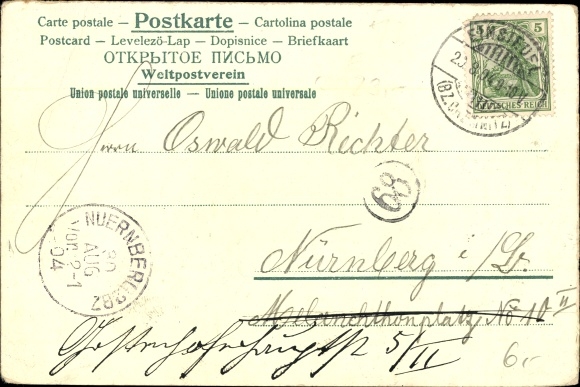 Carte postale — Postkarte — Cartolina postale
Postcard — Levelező-Lap — Dopisnice — Briefkaart
ОТКРЫТОЕ ПИСЬМО
Weltpostverein
Union postale universelle — Unione postale universale
5
DEUTSCHES REICH
Herrn Oswald Richter
68
NUERNBERG 2 BZ
30
AUG
Vor. 2-1
04
Nürnberg i/B.
Melanchthonplatz No 10 II
Gostenhoferhauptstr 5/II
6.-